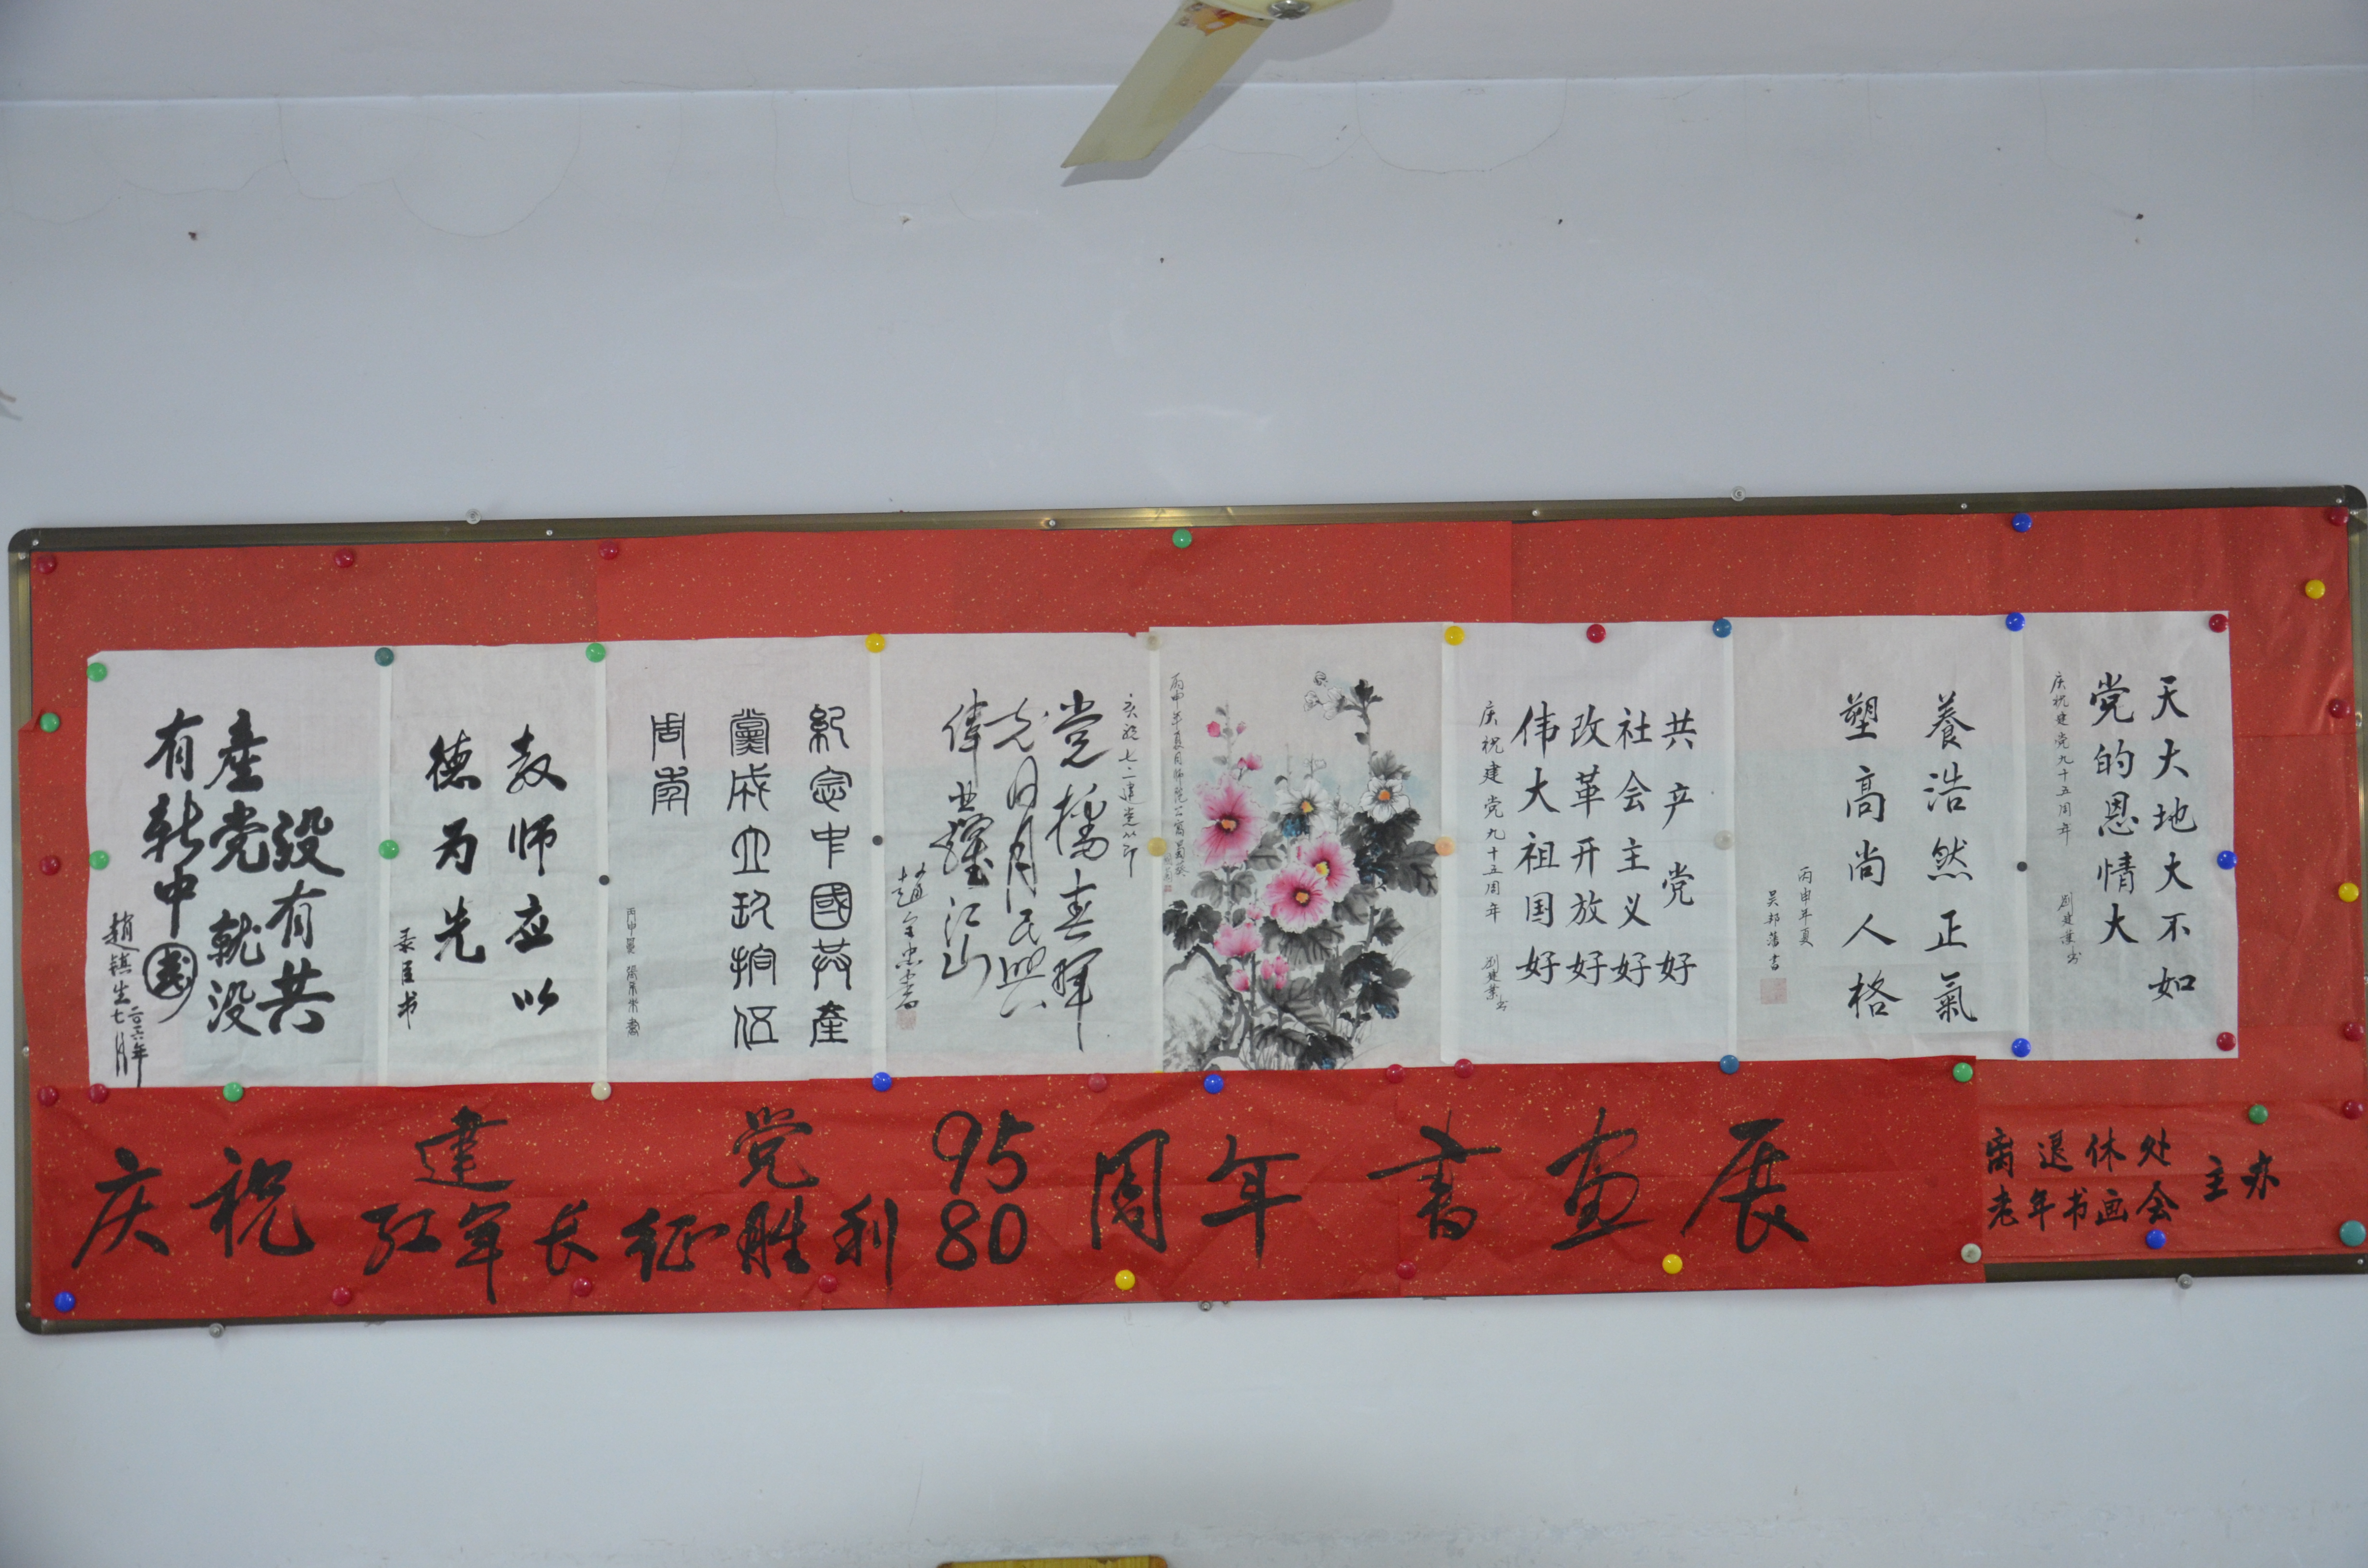 天大地大不如
党的恩情大
庆祝建党九十五周年
劉建業书
養浩然正氣
塑高尚人格
丙申年夏
吴邦藩書
共产党好
社会主义好
改革开放好
伟大祖国好
庆祝建党九十五周年
劉建業书
党播春暉
光同日月民興
偉業耀江山
紀念中國共產
黨成立玖拾伍
周年
教师应以
德为先
没有共
產党就没
有新中國
趙鎮生
二〇一六年
七月
庆祝
建党95
红军长征胜利80
周年書画展
离退休处
老年书画会
主办